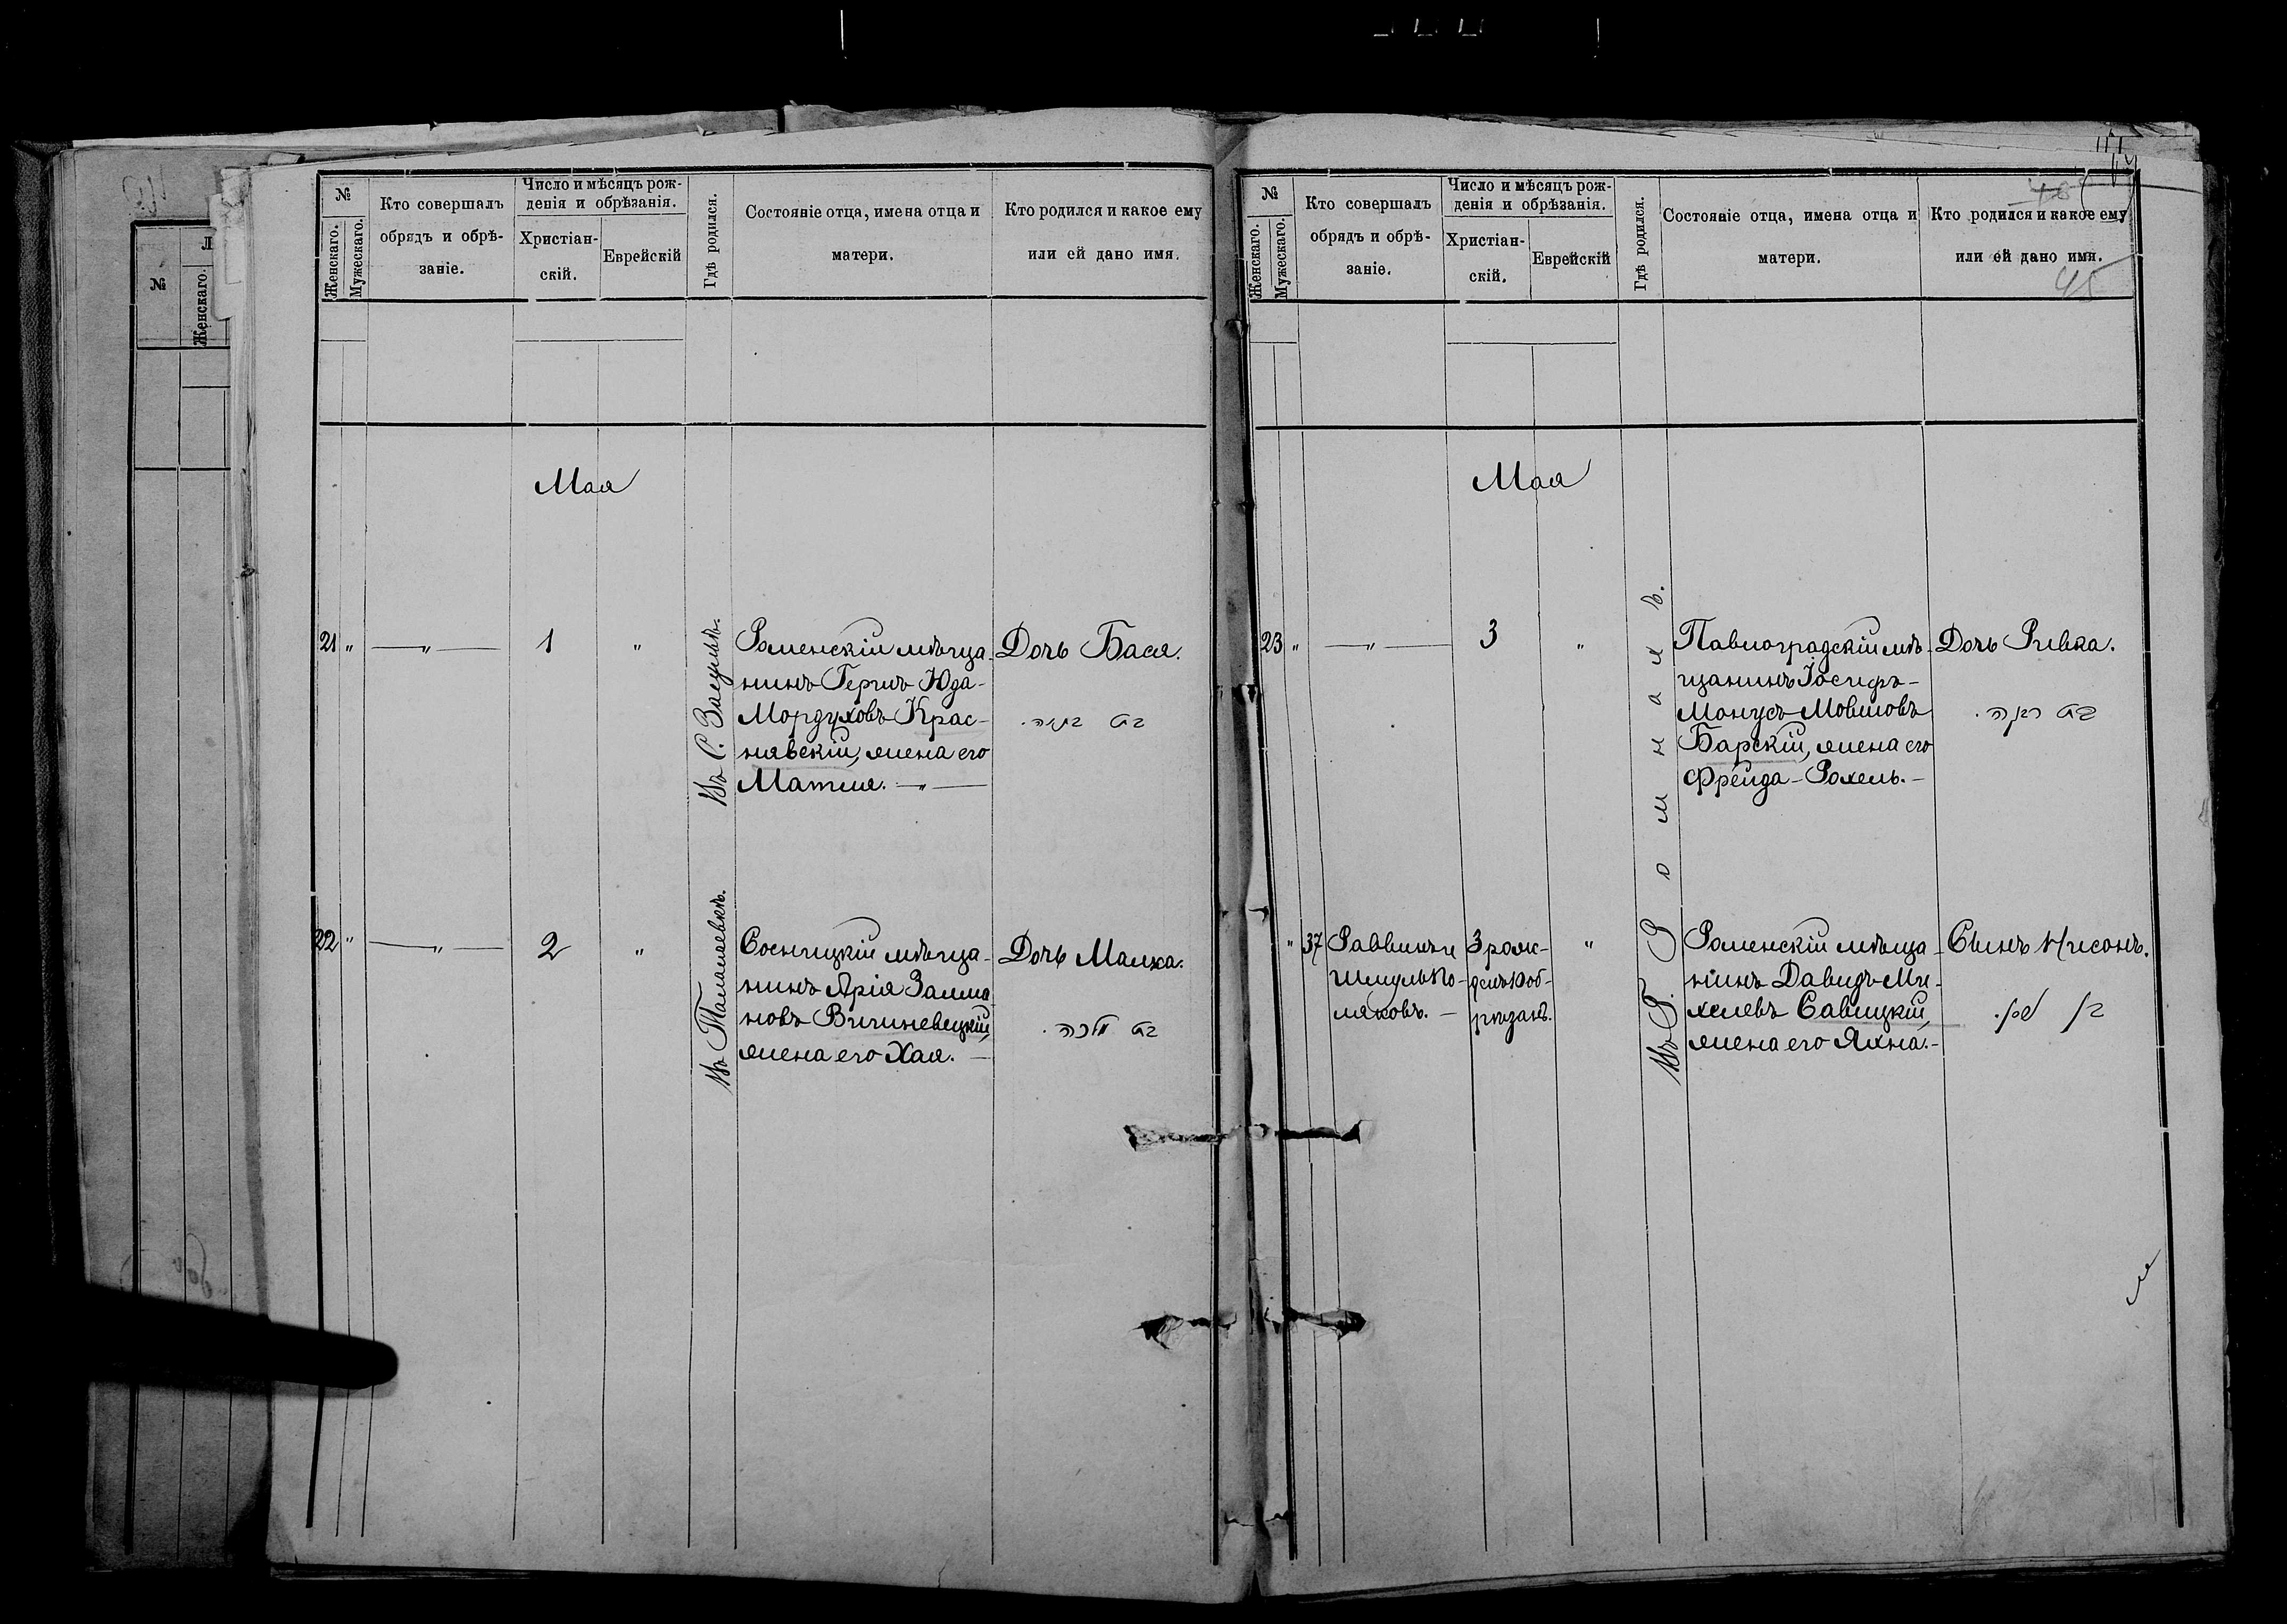 №
Женскаго.
Мужескаго.
Кто совершалъ
обрядъ и обрѣ-
заніе.
Число и мѣсяцъ рож-
денія и обрѣзанія.
Христіан-
скій.
Еврейскій
Гдѣ родился.
Состояніе отца, имена отца и
матери.
Кто родился и какое ему
или ей дано имя.
Мая
21 " — " — 1 "
Въ С. Засульѣ.
Роменскій мѣща-
нинъ Гершъ Юда-
Мордуховъ Крас-
нявскій, жена его
Матля. — " —
Дочь Бася.
בת
22 " — " — 2 "
Въ Талалаевкѣ.
Сосницкій мѣща-
нинъ Арія Залма-
новъ Вишневецкій,
жена его Хая. —
Дочь Малка.
בת מלכה.
№
Женскаго.
Мужескаго.
Кто совершалъ
обрядъ и обрѣ-
заніе.
Число и мѣсяцъ рож-
денія и обрѣзанія.
Христіан-
скій.
Еврейскій
Гдѣ родился.
Состояніе отца, имена отца и
матери.
Кто родился и какое ему
или ей дано имя.
45
Мая
23 " — " — 3 "
Въ Г. Ромнахъ.
Павлоградскій мѣ-
щанинъ Іосифъ-
Монусъ Мовшовъ
Барскій, жена его
Фрейда-Рохель. —
Дочь Ривка.
בת רבקה.
" 37
Раввинъ и
Шмуль По-
ляковъ. —
3 рож-
денъ 10 об-
рѣзанъ.
"
Роменскій мѣща-
нинъ Давидъ Ми-
хелевъ Савицкій,
жена его Яхна. -
Сынъ Нисонъ.
בן ניסן.